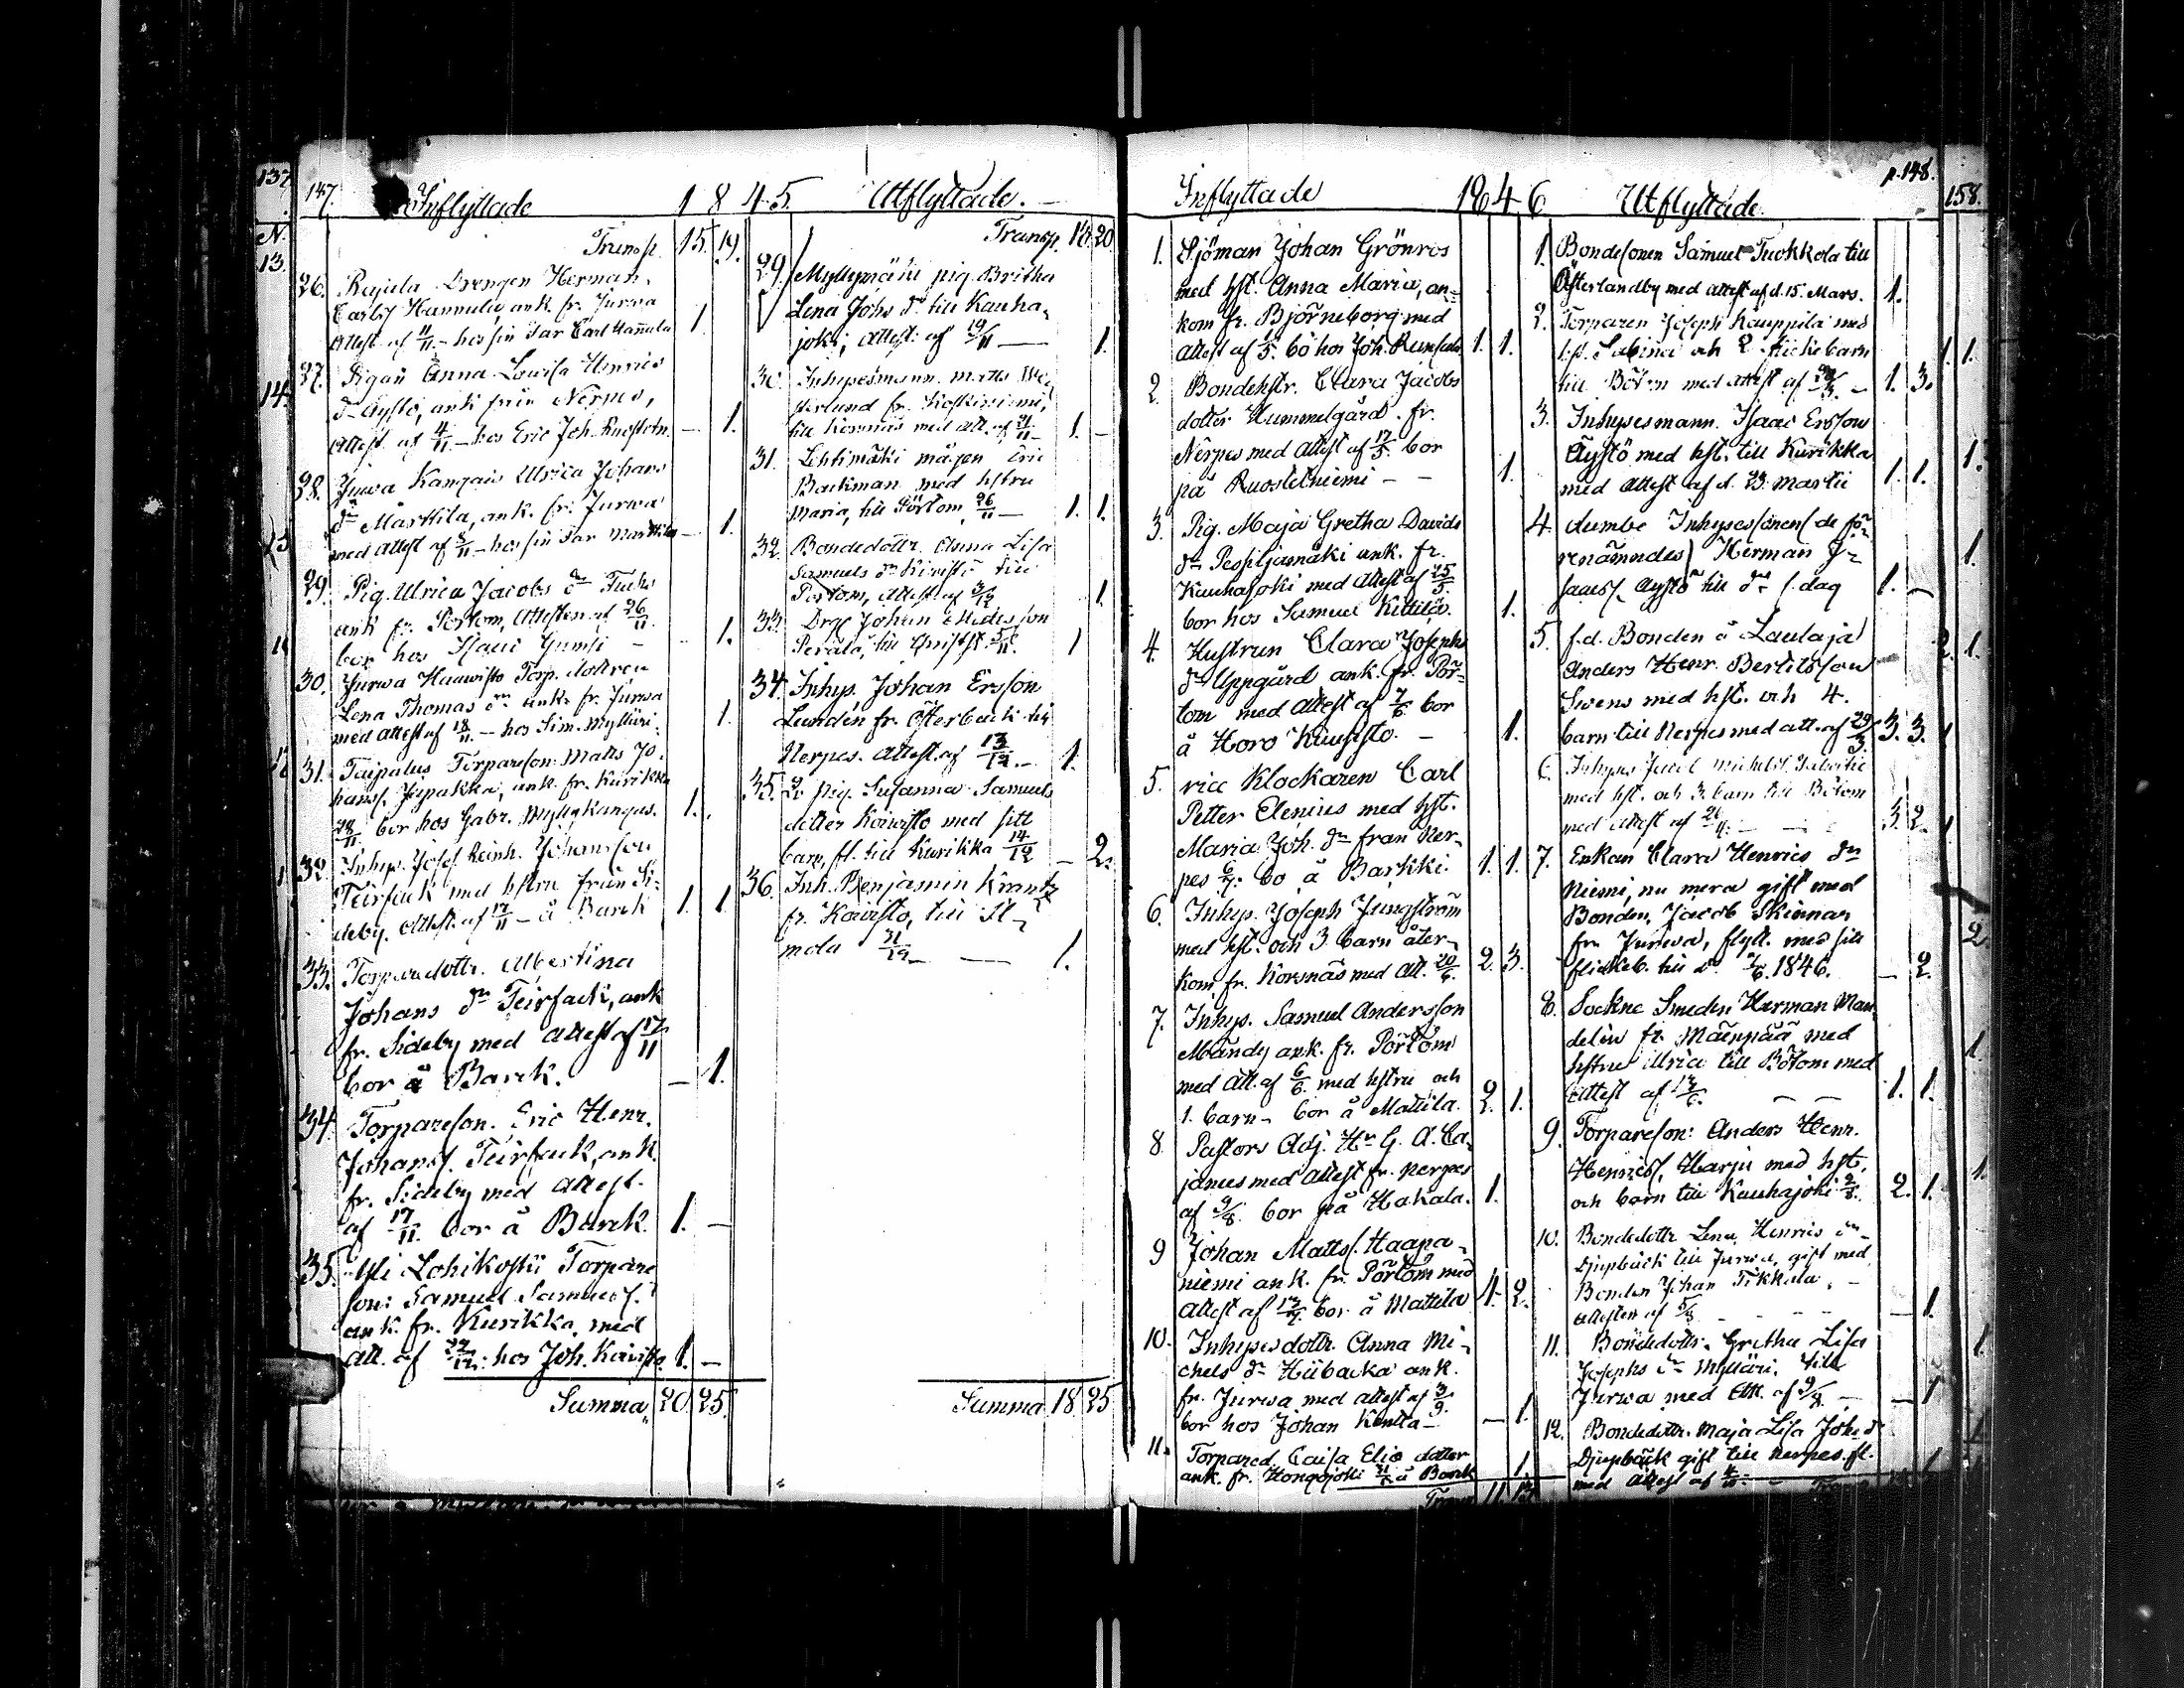 147.
Inflyttade 1845. Utflyttade.
Transp. 15. 19.
26. Rajala Drengen Herman
Carlss. Hannula ank. fr. Jurwa
Attest af 11/11 - hos sin Far Carl Hannula 1.
27. Pigan Anna Lowisa Henrics
dr Aystö, ank. från Nerpes,
Attest af 4/11 - hos Eric Joh. - 1.
28. Jurwa Ulrica Johans
dr Marttila, ank. fr. Jurwa
med Attest af - hos sin Far Marttila - 1.
29. Pig. Ulrica Jacobs dr
ank fr. Pörtom, Attesten af 26/11
bor hos Isaac - 1.
30. Jurwa Torp. dottren
Lena Thomas dr ank. fr. Jurwa
med Attest af 18/11 - hos Sim. Mylläri 1.
31. Taipalus Torpareson Matts Jo-
hanss. ank. fr. Kurikka
28/11 bor hos Gabr. Myllykangas. 1.
32. Inhys. Josef Reinh. Johansson
Teirfack med hstru från Si-
deby. Attest. af 17/11 - å Barck 1. 1
33. Torparedottr. Albertina
Johans dr Teirfack, ank
fr. Sideby med Attest af 17/11
bor å Barck. - 1.
34. Torpareson. Eric Henr.
Johanss. Teirfack, ank.
fr. Sideby med Attest.
af 17/11 bor å Barck. 1. -
35. Lohikoski Torpare
son: Samuel Samuelss.
ank. fr. Kurikka, med
att. af 22/12: hos Joh. Koivisto. 1. -
Summa, 20. 25.
Transp. 20
29. Myllymäki pig. Britha
Lena Johs dr till Kauha-
joki, Attest: af 19/11 - 1.
30. Inhysesmann. Matts We-
sterlund fr. Koskiniemi,
till Korsnäs med att. af 21/11 1. -
31. Lehtimäki mågen Eric
Backman med hstru
Maria, till Pörtom, 26/11 - 1. 1.
32. Bondedottr. Anna Lisa
Samuels dr Koivisto till
Pörtom, Attest. af 3/12 1.
33. Drg. Johan
Perälä, till 1
34. Inhys. Johan Ersson
Lundén fr. Österback till
Nerpes. Attest. af 13/12 - 1.
35. pig. Susanna Samuels
dotter Koivisto med sitt
barn, fl. till Kurikka 14/12 - 2.
36. Inh. Benjamin Krantz
fr. Koivisto, till Il-
mola 31/12 - 1.
Summa 18. 25
p. 148.
Inflyttade 1846 Utflyttade.
1. Sjöman Johan Grönros
med hst. Anna Maria, an-
kom fr. Björneborg med
Attest af 1/5. bo hos Joh. 1. 1.
2. Bondehstr. Clara Jacobs
dotter Hummelgård. fr.
Nerpes med Attest af 17/5. bor
på Ruostetniemi - - 1.
3. Pig. Maja Gretha Davids
dr ank. fr.
Kauhajoki med Attest af 25/5.
bor hos Samuel Kittilä. 1.
4. Hustrun Clara Josephs
dr Uppgård ank. fr. Pör-
tom med Attest af 7/6. bor
å Horo Kiwisto. - 1.
5. vice Klockaren Carl
Petter Elenius med hst.
Maria Joh. dr från Ner-
pes 6/7. bo å Barkki. 1. 1.
6. Inhys. Joseph Jungström
med hst. och 3 barn åter-
kom fr. Korsnäs med Att. 20/6. 2. 3.
7. Inhys. Samuel Andersson
Måndy ank. fr. Pörtom
med Att. af 6/6. med hstru och
1. barn - bor å Mattila. 2. 1.
8. Pastors Adj. Hr G. A. Ca-
janus med Attest fr. Nerpes
af 9/8. bor på Hakala. 1.
9 Johan Matts. Haapa-
niemi ank. fr. Pörtom med
Attest af 13/9. bor å Mattila 4. 2.
10. Inhysesdottr. Anna Mi-
chels dr Hiibacka ank.
fr. Jurwa med attest af 3/9.
bor hos Johan - - 1.
11. Torpared. Caisa Elis dotter 1.
ank. fr. Honqojoki å Barck
11. 13.
1. Bondesonen Samuel Tuokkola till
Österlandby med attest af d. 15. Mars. 1.
2. Torparen Joseph Kauppila med
hst. Sabina och 2 flickebarn
till Bötom med attest af 1. 3.
3. Inhysesmann. Isaac Ersson
Äystö med hst. till Kurikka
med attest af d. 23. Martii 1. 1.
4. dumbe Inhysessonen (de fö-
renämndes) Herman I-
saacs. Aystö till dr s. dag 1. -
5. f.d. Bonden å Laulaja
Anders Henr. Bertilsson
Svens med hst. och 4.
barn till Nerpes med att. af 29/3. 3. 3.
6. Inhyses
med hst. och 3 barn till Bötom
med attest af - 3. 2.
7. Enkan Clara Henrics dr
Niemi, nu mera gift med
Bonden Jacob Skinnar
fr. Jurwa, flytt. med sitt
flickeb. till 1846. - 2.
8. Sockne Smeden Herman Man-
delin fr. Mäenpää med
hstru Ulrica till Bötom med
attest af 13/6. - - 1. 1.
9. Torpareson: Anders Henr.
Henricss. Harju med hst.
och barn till Kauhajoki 2. 1.
10. Bondedottr Lena Henrics dr
Djupbäck till Jurwa, gift med
Bonden Johan Tikkala, -
attesten af - 1.
11. Bondedottr. Gretha Lisa
Josephs dr Mylläri. till
Jurwa med Att. af - - 1
12. Bondedottr. Maja Lisa Joh. d
Djupbäck gift till Nerpes. fl.
med attest af
158.